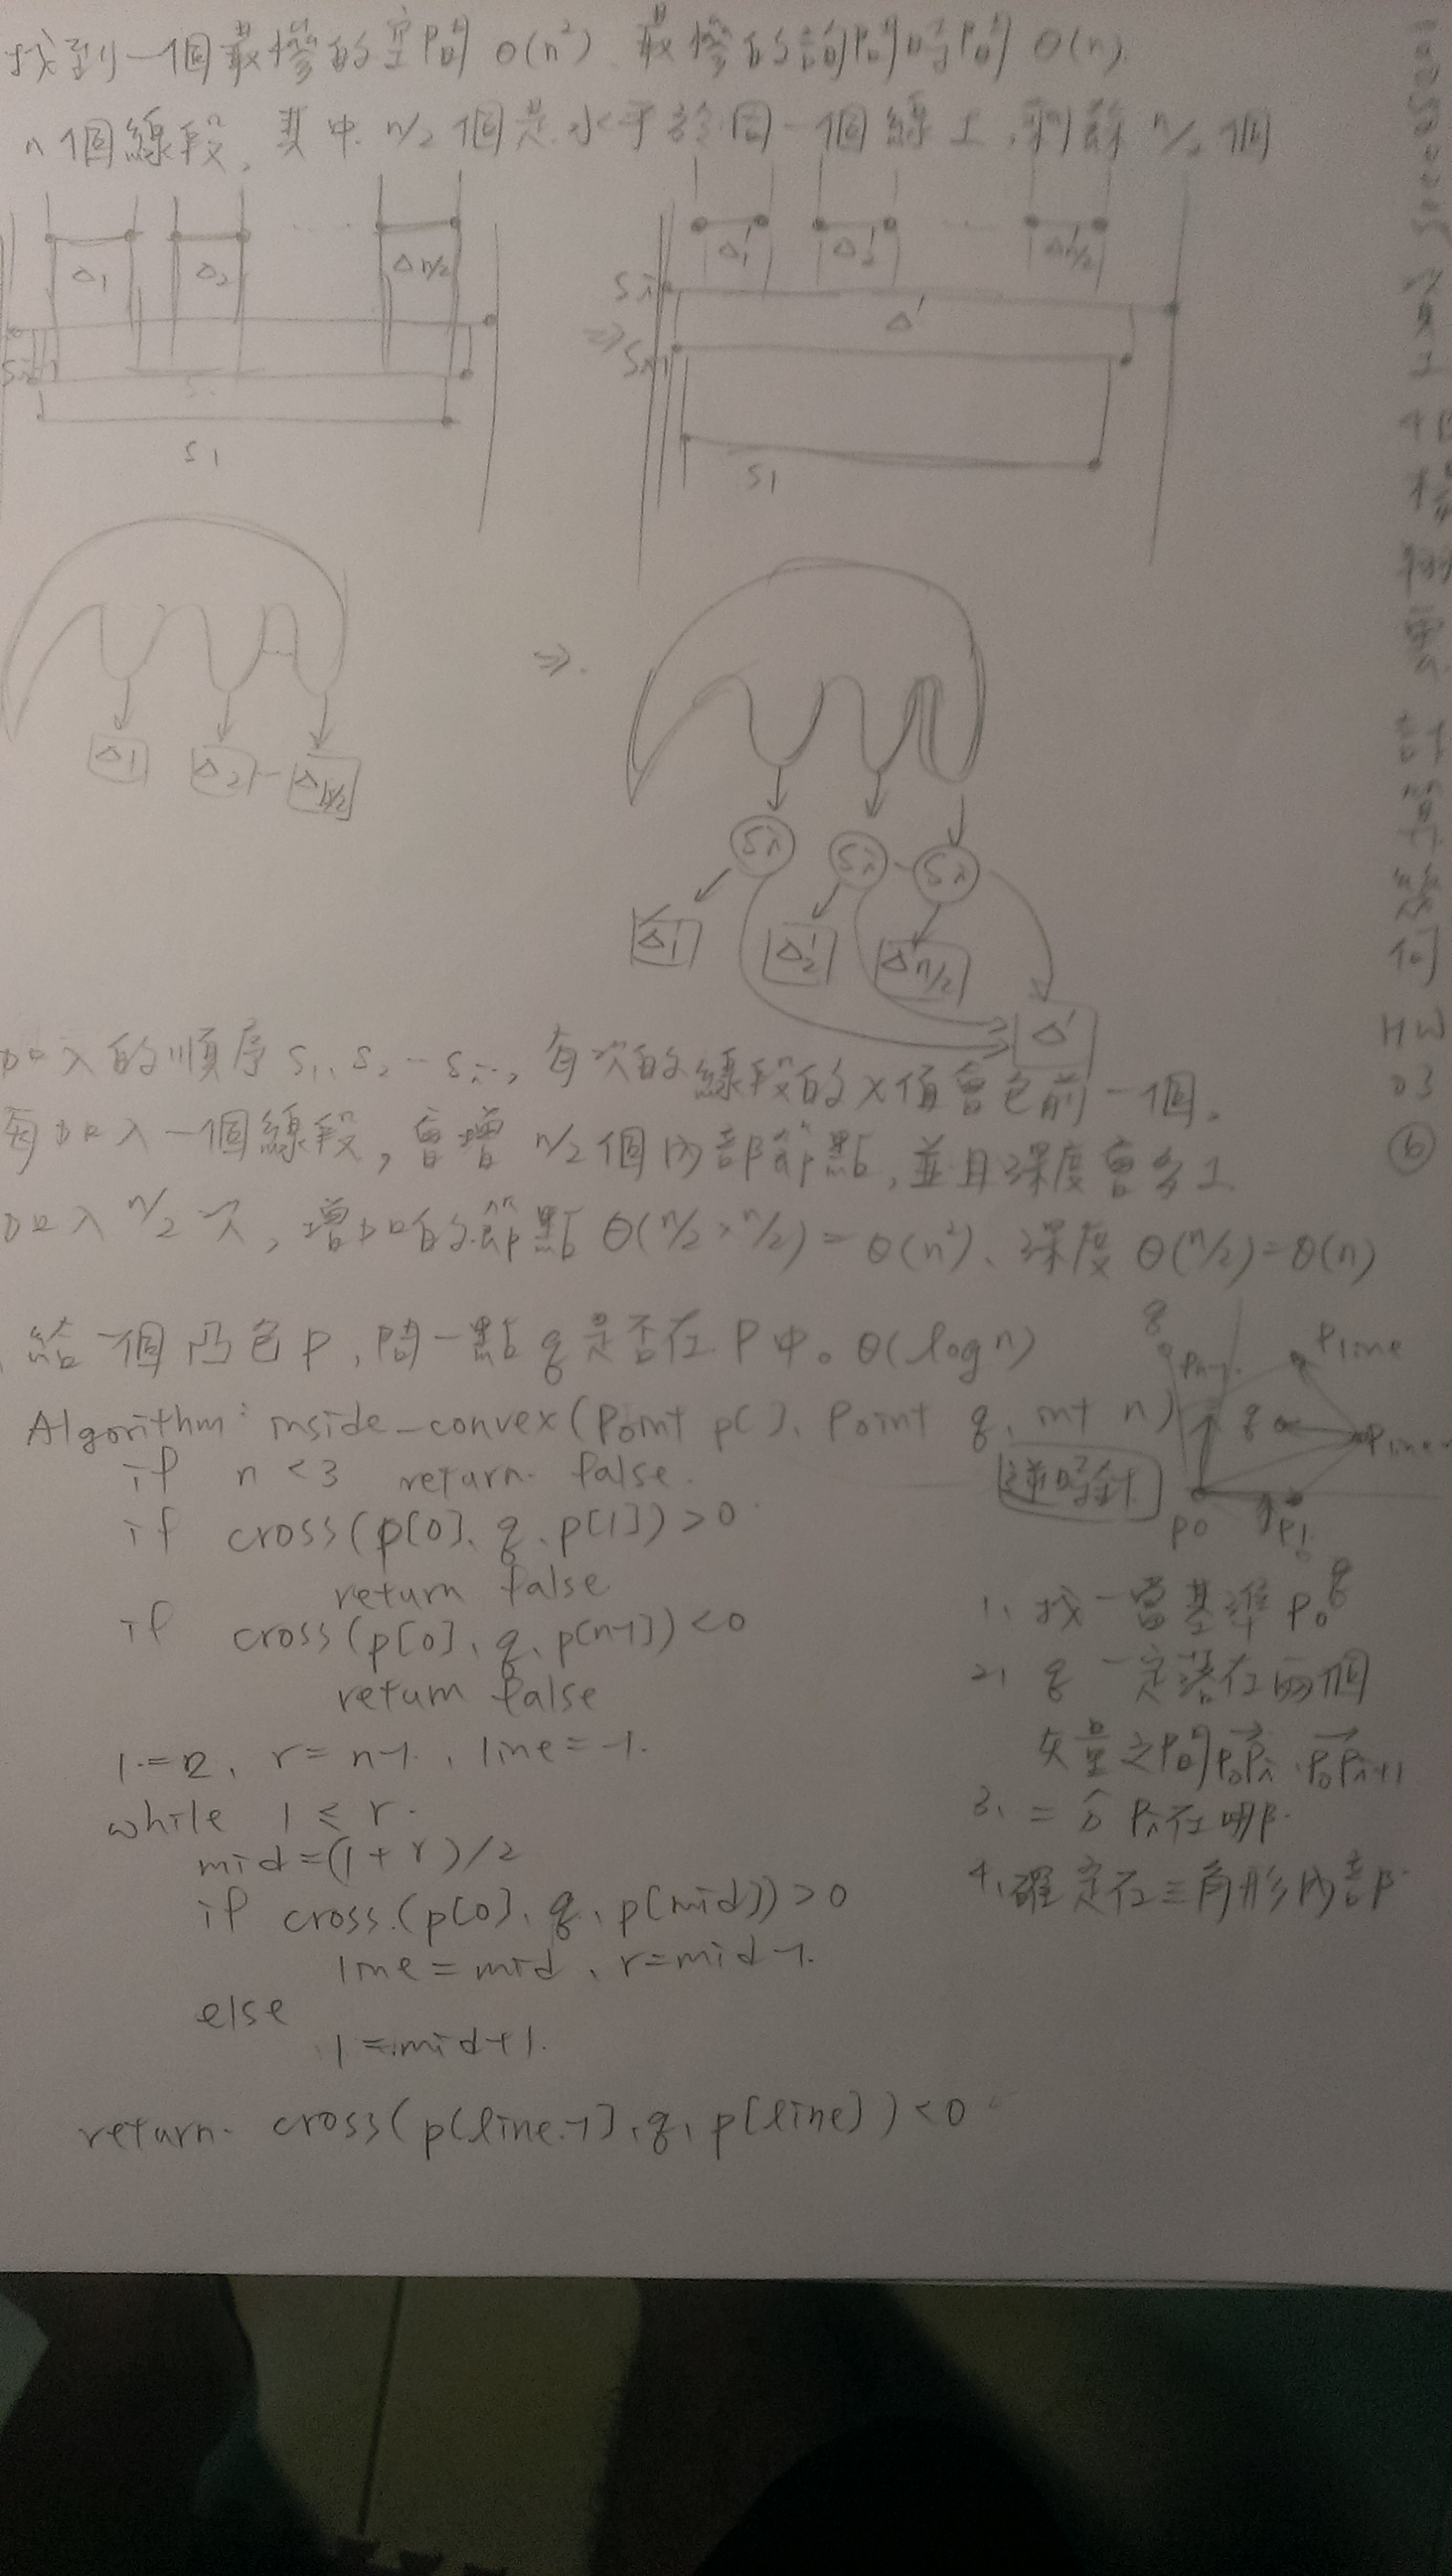 找到一個最慘的空間 θ(n²)、最慘的詢問時間 θ(n).
n個線段, 其中 n/2 個是水平於同一個線上, 剩餘 n/2 個
Δ1 Δ2 Δn/2
S1
Δ1' Δ2' Δn/2'
Si
Δ'
⇒
S1
Δ1 Δ2 Δn/2
⇒
Si Si Si
Δ1' Δ2' Δn/2'
Δ'
加入的順序 S1、S2 … Si…, 每次的線段的 x 值會包前一個。
每加入一個線段, 會增 n/2 個內部節點, 並且深度會多1
加入 n/2 次, 增加的節點 θ(n/2 × n/2) = θ(n²)、深度 θ(n/2) = θ(n)
給一個凸包 P, 問一點 q 是否在 P 中。θ(log n)
Algorithm: inside_convex(Point p[], Point q, int n)
if n < 3 return false.
if cross(p[0], q, p[1]) > 0
return false
if cross(p[0], q, p[n-1]) < 0
return false
l = 2, r = n-1, line = -1.
while l ≤ r.
mid = (l + r)/2
if cross(p[0], q, p[mid]) > 0
line = mid, r = mid-1.
else
l = mid+1.
return cross(p[line-1], q, p[line]) < 0
q
Pn-1
Pline
q
P0
P1
逆時針
1、找一個基準 P0
2、q 一定落在兩個
矢量之間 P0Pi、P0Pi+1
3、二分 Pi 在哪
4、確定在三角形內部
計算幾何
HW
03
⑥